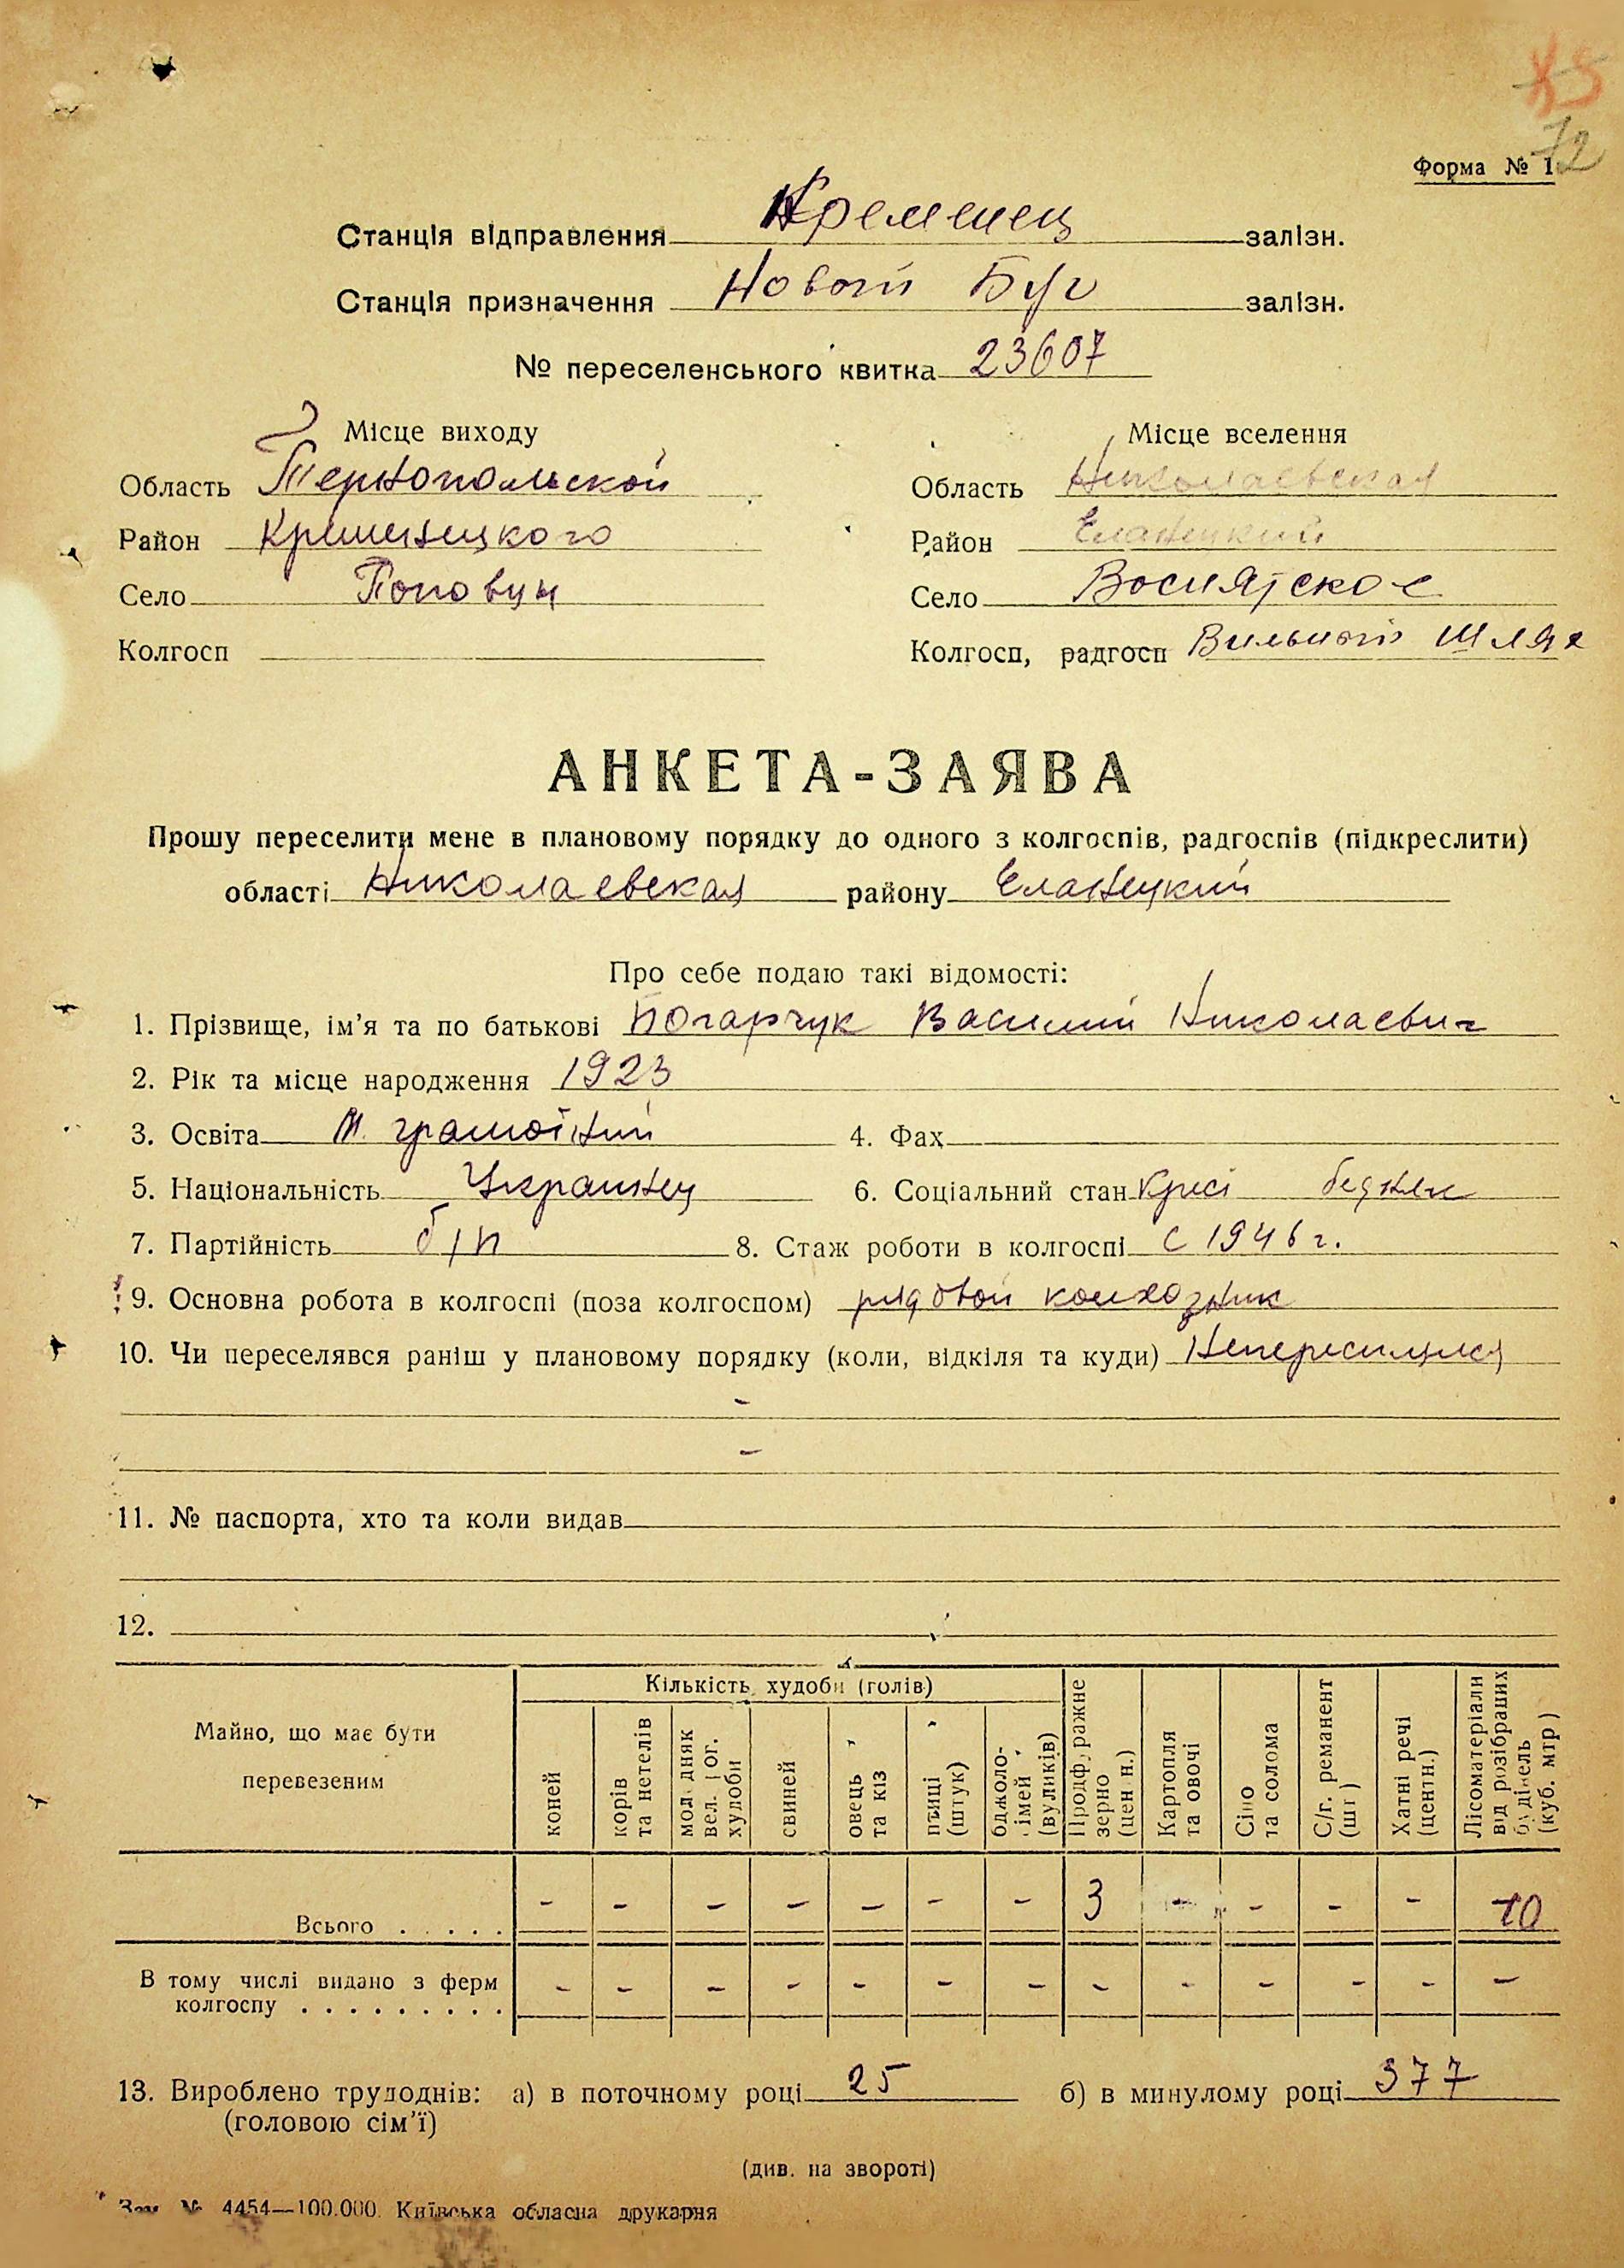 72
Форма № 1
Станція відправлення Кременец залізн.
Станція призначення Новый Буг залізн.
№ переселенського квитка 23607
Місце виходу Місце вселення
Область Тернопольской Область Николаевская
Район Кременецкого Район Еланецкий
Село Поповцы Село Возсиятское
Колгосп Колгосп, радгосп Вильный Шлях
АНКЕТА-ЗАЯВА
Прошу переселити мене в плановому порядку до одного з колгоспів, радгоспів (підкреслити)
області Николаевская району Еланецкий
Про себе подаю такі відомості:
1. Прізвище, ім’я та по батькові Василий Николаевич
2. Рік та місце народження 1923
3. Освіта М. грамотний 4. Фах
5. Національність Украинец 6. Соціальний стан бедняк
7. Партійність б/п 8. Стаж роботи в колгоспі с 1946 г.
9. Основна робота в колгоспі (поза колгоспом) рядовой колхозник
10. Чи переселявся раніш у плановому порядку (коли, відкіля та куди)
-
-
11. № паспорта, хто та коли видав
12.
Майно, що має бути перевезеним
Кількість худоби (голів)
коней
корів та нетелів
молодняк вел. рог. худоби
свиней
овець та кіз
птиці (штук)
бджолосімей (вуликів)
Продфуражне зерно (центн.)
Картопля та овочі
Сіно та солома
С/г. реманент (шт)
Хатні речі (центн.)
Лісоматеріали від розібраних будівель (куб. мтр)
Всього . . . . . - - - - - - - 3 - - - - 10
В тому числі видано з ферм
колгоспу . . . . . . . . . - - - - - - - - - - - - -
13. Вироблено трудоднів: а) в поточному році 25 б) в минулому році 377
(головою сім’ї)
(див. на звороті)
Зам. № 4454—100.000. Київська обласна друкарня